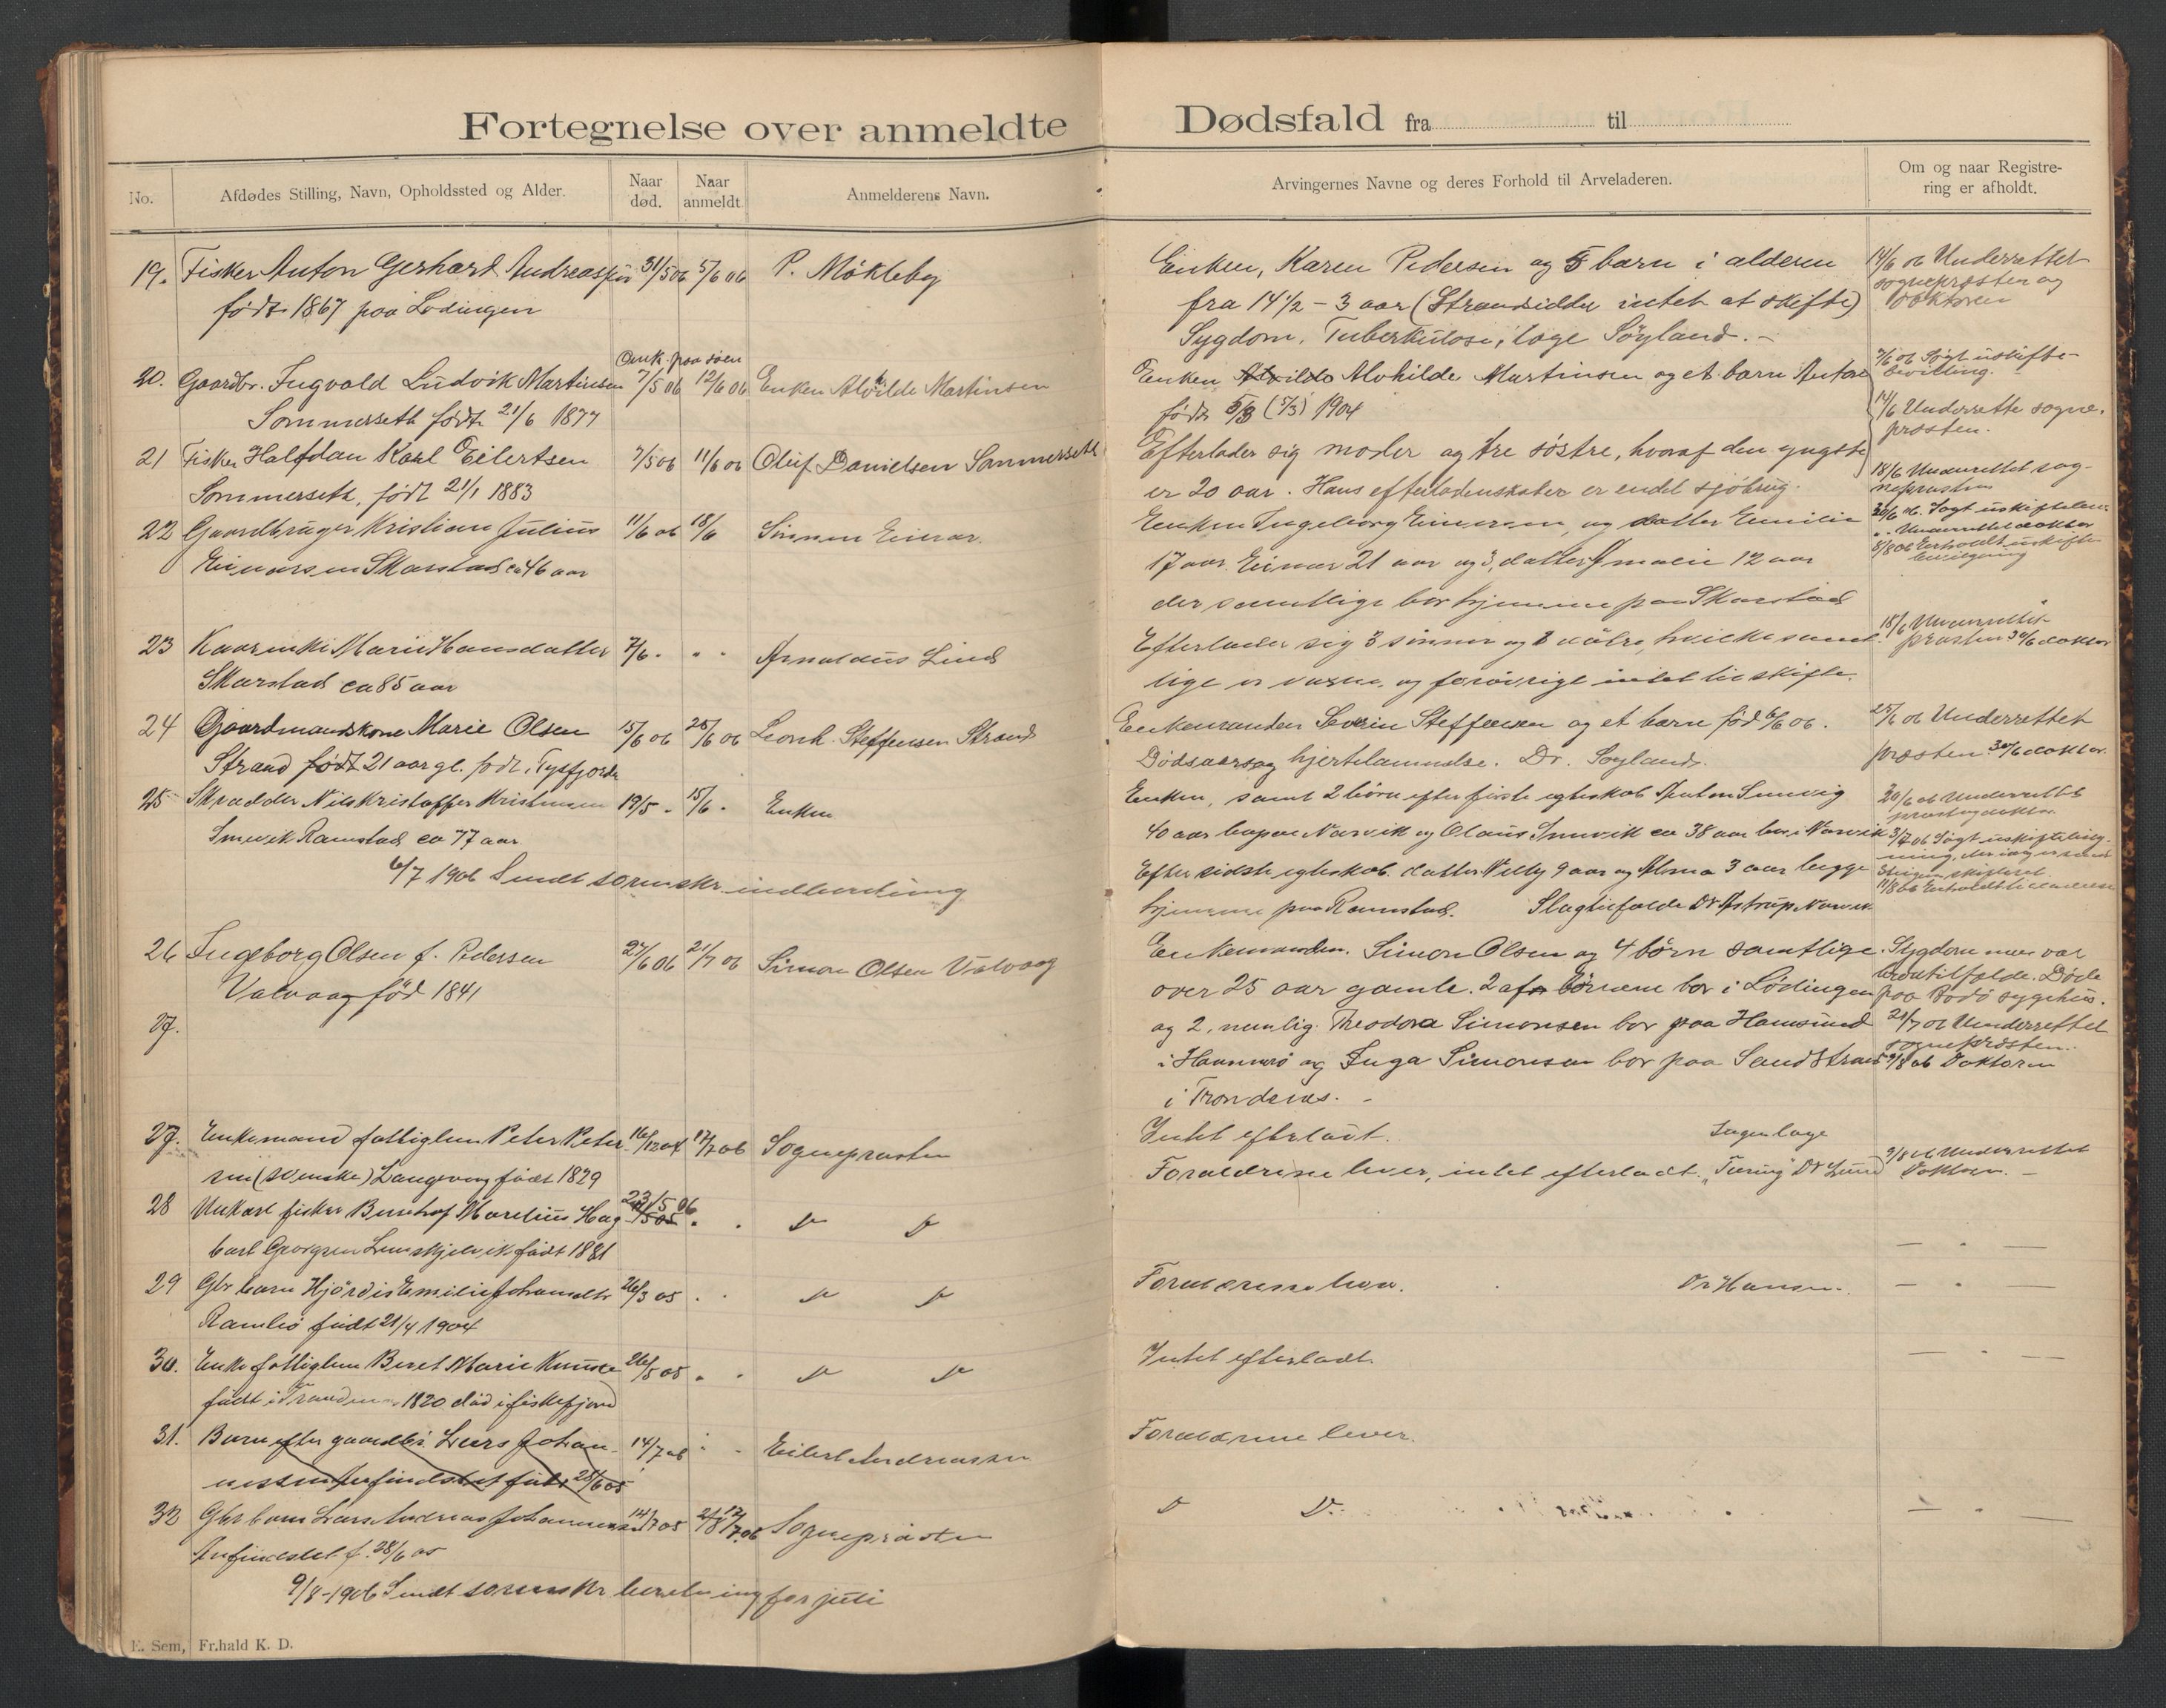 Fortegnelse over anmeldte Dødsfald fra til
No.
Afdødes Stilling, Navn, Opholdssted og Alder.
Naar død.
Naar anmeldt
Anmelderens Navn.
Arvingernes Navne og deres Forhold til Arveladeren.
Om og naar Registre-
ring er afholdt.
19. Fisker Anton Gerhard 31/5 06 5/6 06 P. Mökleby
født 1867 paa Lødingen
Enken, Karen Pedersen og 5 barn i alderen
fra 14 1/2 - 3 aar (Strandsidder intet at skifte)
Sygdom. Tuberkulose, læge Söyland. -
14/6 06 Underrettet
sognepræsten og
doktoren
20. Gaardbr. Ingvald Ludvik Martinsen 7/5 06 12/6 06 Enken Alvilde Martinsen
Omk. paa søen
Sommerseth født 21/6 1877
Enken Alvilde Alvhilde Martinsen og et barn Anton
født 5/3 (5/3) 1904
7/6 06 Søgt uskifte-
bevilling.
14/6 Underrette sogne-
præsten.
21 Fisker Halfdan Karl Eilertsen 7/5 06 11/6 06 Oluf Danielsen Sommerseth
Sommerseth, født 21/1 1883
Efterlader sig moder og tre söstre, hvoraf den yngste
er 20 aar. Hans efterladenskaber er endel sjöbrug.
18/6 Underrettet sog-
nepræsten
22 Gaardbruger Kristian Julius 11/6 06 18/6 Sönnen Einar.
Einarsen Skarstad ca 46 aar
Enken Ingeborg Einarsen, og datter Emilie
17 aar. Einar 21 aar og datter Amalie 12 aar
der samtlige bor hjemme paa Skarstad
8/8 06 Erholdt uskifte
bevilgning
23 Marie Hansdatter 7/6 " " " Arnoldus Lind
Skarstad ca 85 aar
Efterlader sig 3 sönner og 3 dötre, hvilke samt-
lige er voxne, og forövrigt intet til skifte.
18/6 Underrettet
præsten 30/6 doktor
24 Gaardmandskone Marie Olsen 15/6 06 25/6 06 Leonh. Steffensen Strand
Strand født 21 aar gl. født i Tysfjorde
Enkemanden Severin Steffensen og et barn fød 6/6 06.
Dødsaarsag hjertelammelse. Dr. Soyland.
25/6 06 Underrettet
præsten 30/6 doktor.
25 Skrædder Nils Kristoffer Kristensen 19/5 " 15/6 " Enken
Smevik Ramstad ca 77 aar
6/7 1906 Sendt sorenskr indberetning
Enken, samt 2 börn efter förste egteskab Anton
40 aar bopæl Narvik og Olaus ca 38 aar bor i Narvik
Efter sidste egteskab. datter Nelly 9 aar og Alma 3 aar begge
hjemme paa Ramstad. Slagtilfælde Dr Astrup Narvik
20/6 06 Underrettet
præst og doktor.
26 Ingeborg Olsen f. Pedersen 27/6 06 21/7 06 Simon Olsen Valvaag
Valvaag fød 1841
Enkemanden. Simon Olsen og 4 börn samtlige
over 25 aar gamle. 2 af börnene bor i Lödingen
og 2, nemlig Theodora Simonsen bor paa Hamsund
i Hammerö og Inga Simonsen bor paa Sandstrand
i Trondenes. -
paa Bodö sygehus.
21/7 06 Underrettet
sognepræsten.
9/8 06 Doktoren
27.
27. Enkemand fattiglem Peter Peter- 16/12 04 17/7 06 Sognepræsten
sen (svenske) Langvaag födt 1829
Intet efterladt. Ingen læge
9/8 06 Underrettet
Doktoren. -
28 Unkarl fisker Marelius Hag- 23/5 06 " "
bart Georgsen født 1881
Forældrene lever, intet efterladt. "Tæring" Dr Lund
29 Gbr barn Hjördis Emilie Johansdtr 26/3 05 " "
Ramlö født 21/4 1904
Forældrene lever. Dr Hansen.
30. Enke fattiglem Beret Marie 26/5 05 " "
født i Tronden 1820 død i fiskefjord
Intet efterladt.
31. Barn efter gaardbr. Lars Johan- 14/7 06 " " Eilert Andreassen
nessen født 28/6 05
Forældrene lever.
32 Gbr barn Lars Andreas Johannessen 14/7 05 17/7 06 Sognepræsten
Arfindslet f. 28/6 05
9/8-1906 Sendt sorenskr beretning for juli
E. Sem, Fr.hald K. D.